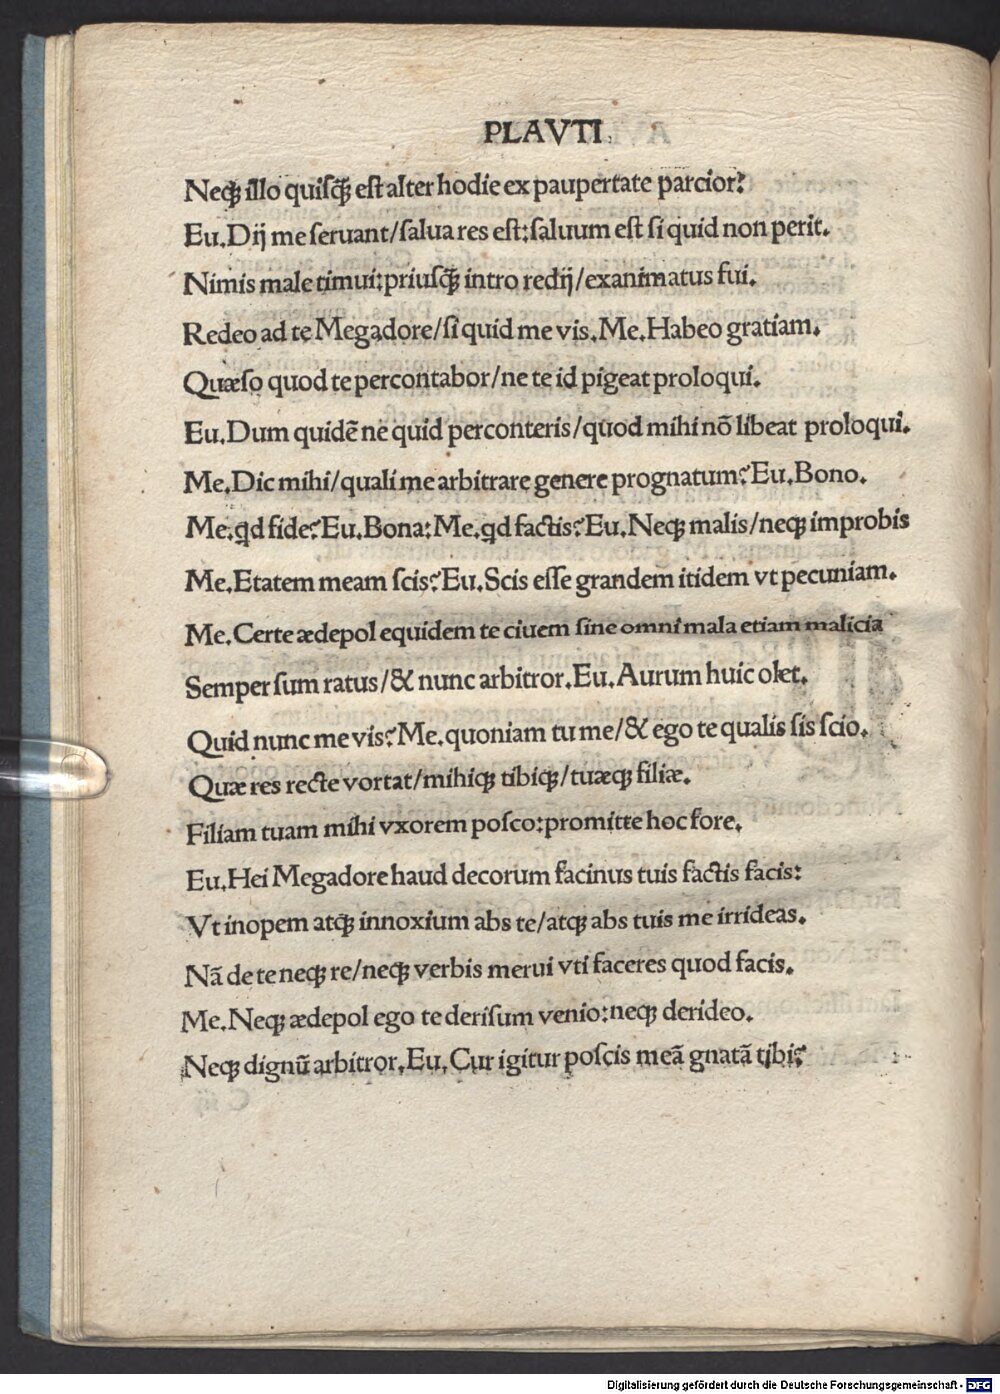 PLAVTI.
Neqꝫ illo quiſq̃ꝫ eſt alter hodie ex paupertate parcior?
Eu.Dij me ſeruant/ſalua res eſt:ſaluum eſt ſi quid non perit.
Nimis male timui:priuſq̃ꝫ intro redij/exanimatus fui.
Redeo ad te Megadore/ſi quid me vis.Me.Habeo gratiam.
Quæſo quod te percontabor/ne te id pigeat proloqui.
Eu.Dum quidē ne quid perconteris/quod mihi nō libeat proloqui.
Me.Dic mihi/quali me arbitrare genere prognatum?Eu.Bono.
Me.qd fide?Eu.Bona:Me.qd factis?Eu.Neqꝫ malis/neqꝫ improbis
Me.Etatem meam ſcis?Eu.Scis eſſe grandem itidem vt pecuniam.
Me.Certe ædepol equidem te ciuem ſine omni mala etiam malicia
Semper ſum ratus/& nunc arbitror.Eu.Aurum huic olet.
Quid nunc me vis?Me.quoniam tu me/& ego te qualis ſis ſcio.
Quæ res recte vortat/mihiqꝫ tibiqꝫ/tuæqꝫ filiæ.
Filiam tuam mihi vxorem poſco:promitte hoc fore.
Eu.Hei Megadore haud decorum facinus tuis factis facis:
Vt inopem atqꝫ innoxium abs te/atqꝫ abs tuis me irrideas.
Nā de te neqꝫ re/neqꝫ verbis merui vti faceres quod facis.
Me.Neqꝫ ædepol ego te deriſum venio:neqꝫ derideo.
Neqꝫ dignū arbitror.Eu.Cur igitur poſcis meā gnatā tibi?
Digitalisierung gefördert durch die Deutsche Forschungsgemeinschaft - DFG